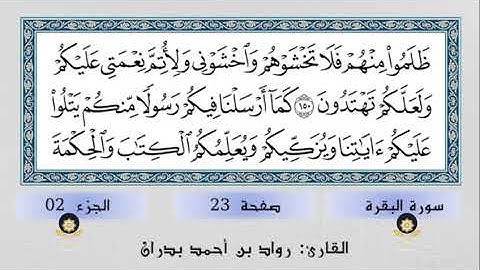 ظَلَمُوا۟ مِنْهُمْ فَلَا تَخْشَوْهُمْ وَٱخْشَوْنِى وَلِأُتِمَّ نِعْمَتِى عَلَيْكُمْ
وَلَعَلَّكُمْ تَهْتَدُونَ ١٥٠ كَمَآ أَرْسَلْنَا فِيكُمْ رَسُولًا مِّنكُمْ يَتْلُوا۟
عَلَيْكُمْ ءَايَٰتِنَا وَيُزَكِّيكُمْ وَيُعَلِّمُكُمُ ٱلْكِتَٰبَ وَٱلْحِكْمَةَ
سورة البقرة صفحة 23 الجزء 02
القارئ: رواد بن أحمد بدران